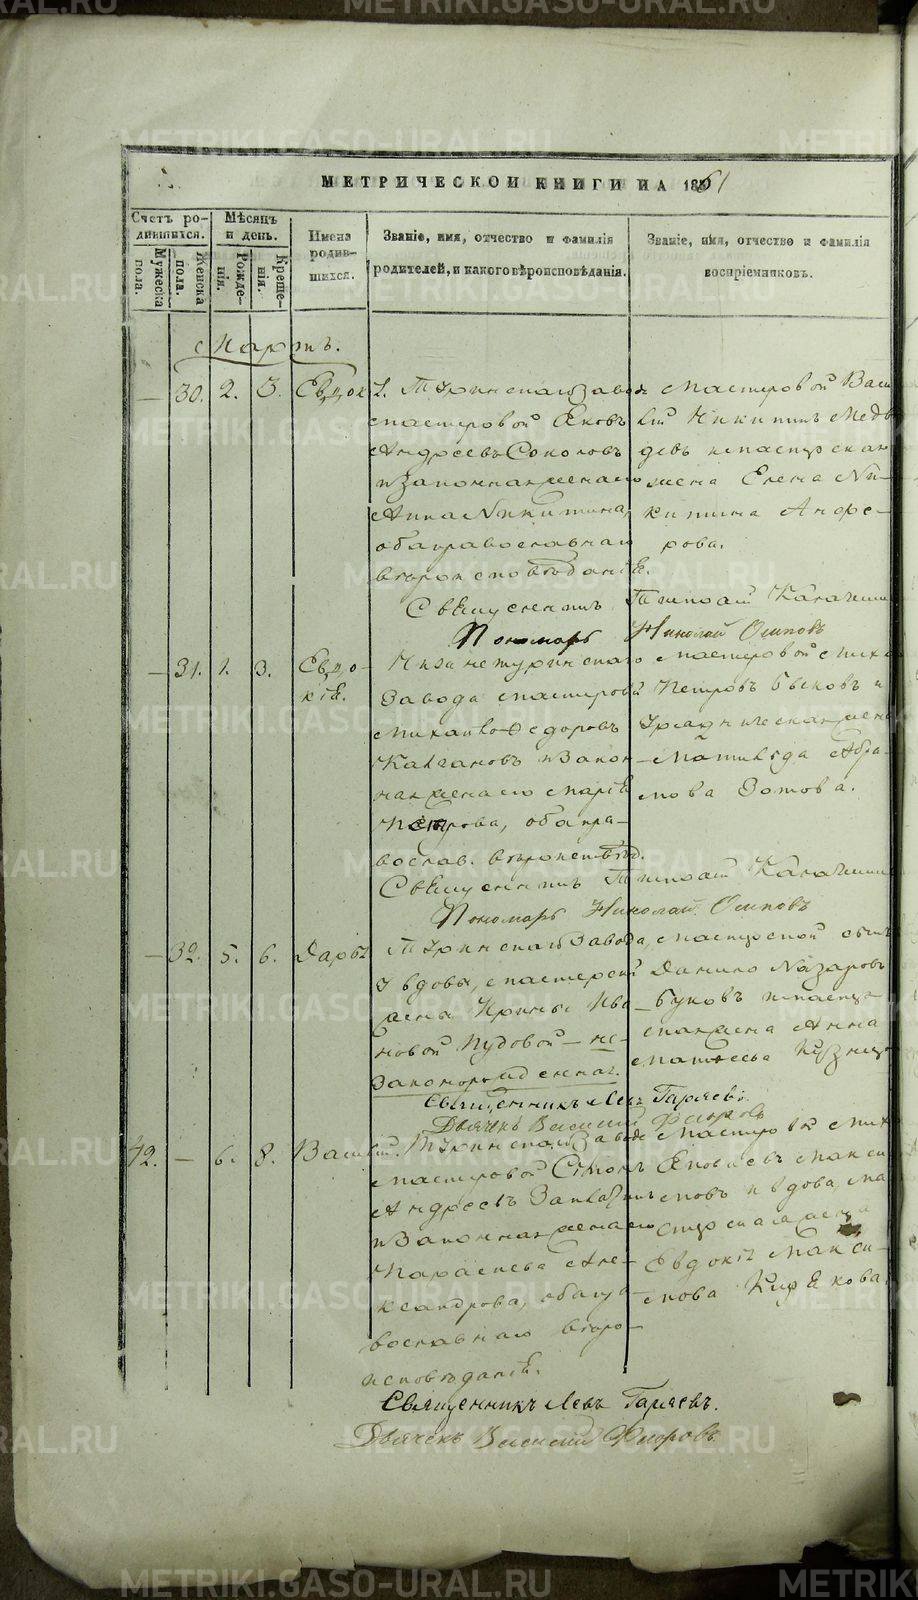 МЕТРИЧЕСКОЙ КНИГИ НА 1861
Счетъ ро-
дившихся.
Мужеска
пола.
Женска
пола.
Мѣсяцъ
и день.
Рожде-
нія.
Креще-
нія.
Имена
родив-
шихся.
Званіе, имя, отчество и фамилія
родителей, и какого вѣроисповѣданія.
Званіе, имя, отчество и фамилія
воспріемниковъ.
Мартъ.
— 30. 2. 3.
Туринскаго Завода
мастеровой Яковъ
Андреевъ Соколовъ
и Законная жена его
Анна Никитина,
оба православнаго
вѣроисповѣданія.
Мастеровой Васи
лій Никитинъ Медвѣ
девъ и мастерская
жена Елена Ни-
китина Андре-
рова.
Священникъ Тимофей
Пономарь Николай Осиповъ
— 31. 1. 3. Евдо-
кія.
Нижнетуринскаго
Завода мастеровой
Михаилъ Федоровъ
и Закон
ная жена его Марія
Петрова, оба пра-
вослав. вѣроисповѣд.
мастеровой
Петровъ Быковъ и
жена
Матильда Абра-
мова Зотова.
Священникъ Тимофей
Пономарь Николай Осиповъ
— 32. 5. 6. Дарья
Туринскаго Завода,
У вдовы, мастерской
жены Ирины Ива
новой Пудовой — не-
законорожденная.
мастерской сынъ
Данило Назаровъ
Буковъ и мастер
ская жена Анна
Кузнец
Священникъ Левъ Гаряевъ.
Дьячекъ Василій Флоровъ
42. — 6. 8. Василій.
Туринскаго Завода
мастеровой
Андреевъ
и Законная жена его
Параскева Але-
ксандрова, оба пра-
вославнаго вѣро-
исповѣданія.
Мастеровой
Яковлевъ Макси
мовъ и вдова, ма
стерская жена
Евдокія Макси-
мова Кирякова.
Священникъ Левъ Гаряевъ.
Дьячекъ Василій Флоровъ
METRIKI.GASO-URAL.RU